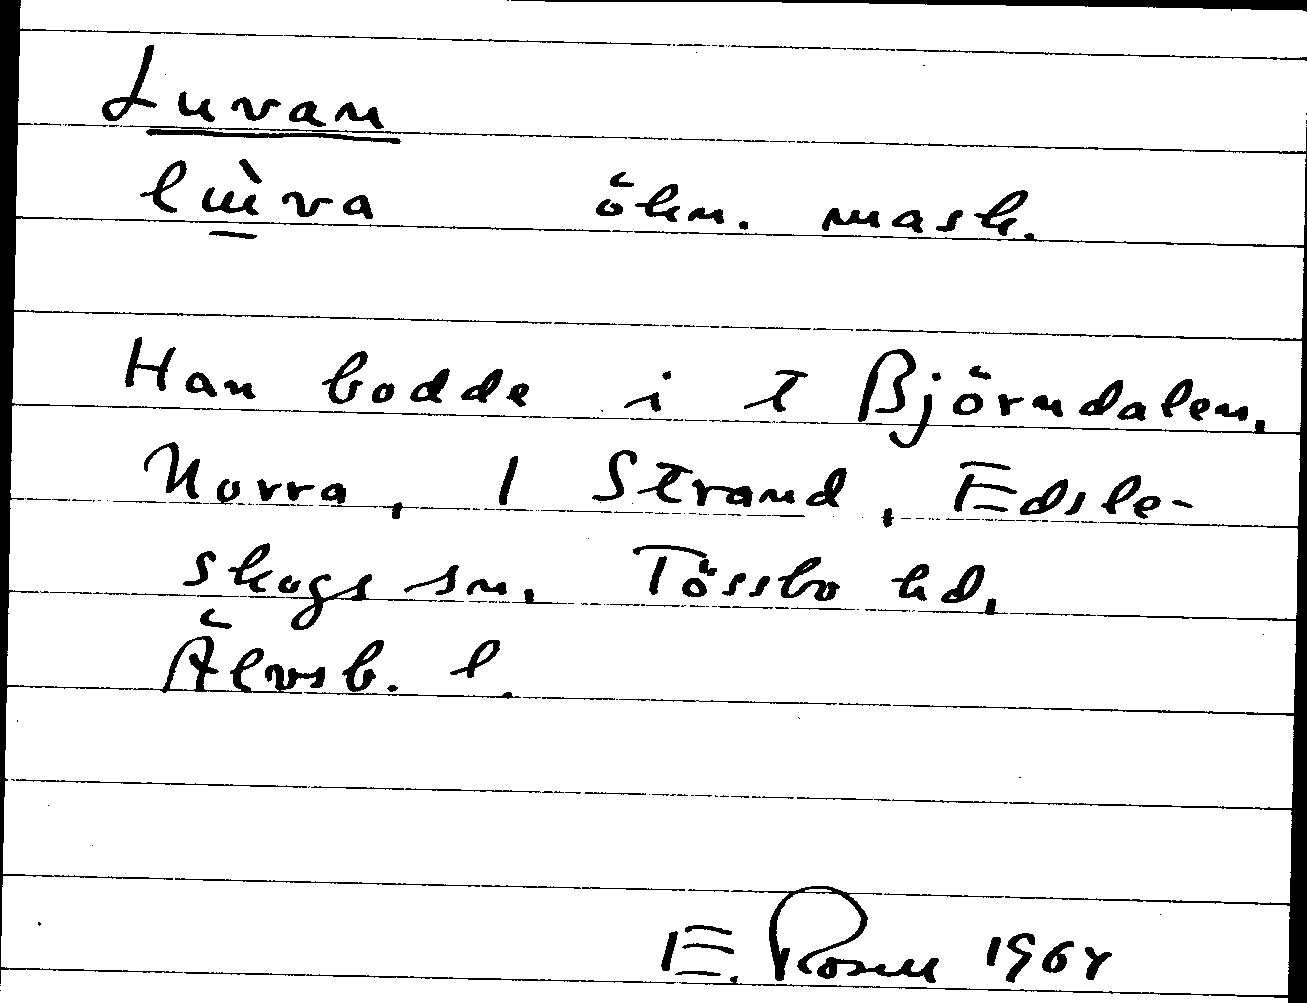 Luvan
lɯ̀va ökn. mask.
Han bodde i t Björndalen,
Norra, 1 Strand, Edsle-
skogs sn. Tössbo hd,
Älvsb. l.
E. Rosell 1964